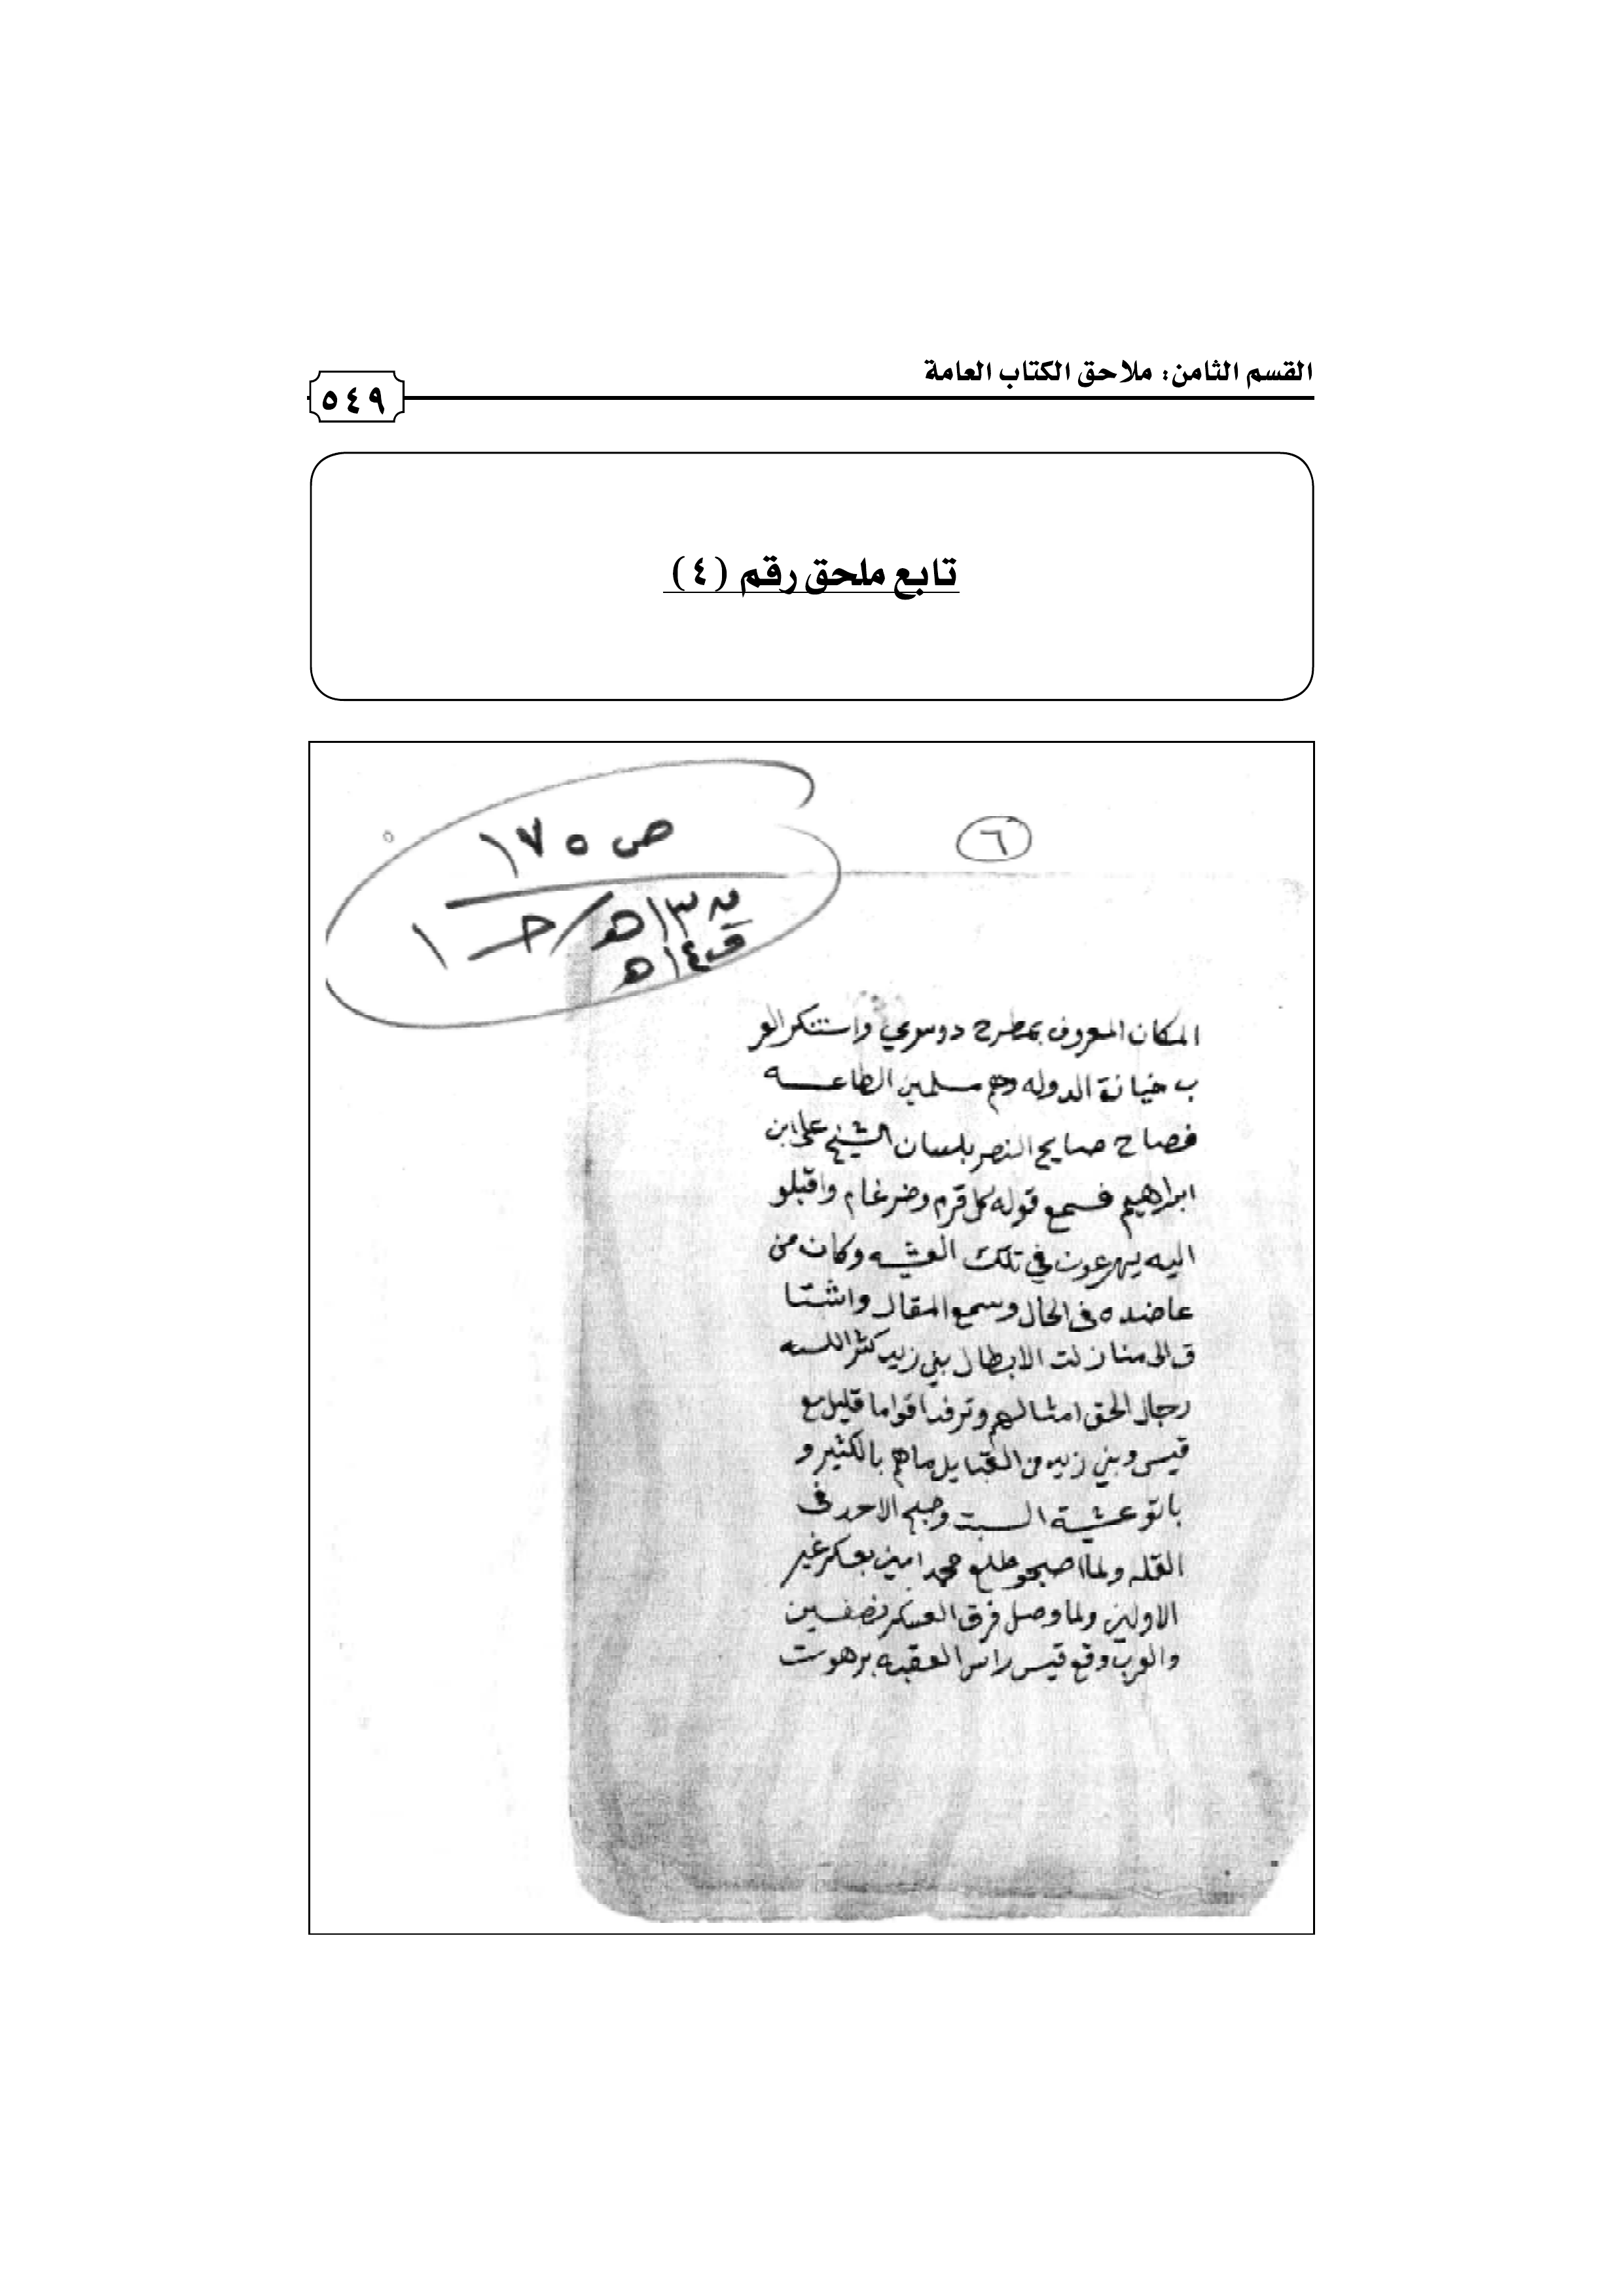 القسم الثامن: ملاحق الكتاب العامة
٥٤٩
تابع ملحق رقم (٤)
ص ١٧٥
١٣هـ/حـ ١
ق١٤هـ
٦
المكان المعروف بمطرح دوسري واستنكر العر
ب خيانة الدوله وهم مسلمين الطاعـــه
فصاح صايح النصر بلسان الشيخ علي ابن
ابراهيم فسمع قوله كل قرم وضرغام واقبلو
اليه يهرعون في تلك العشيه وكان من
عاضده في الحال وسمع المقال واشتـا
ق الى منازلت الابطال بني زيد كثر اللـه
رجال الحق امثالهم وترفد اقواما قليل مع
قيس وبني زيد من القبايل ماهم بالكثير و
باتو عشية السبت وصبح الاحد في
القله ولما اصبحو طلع محمد امين بعسكر غير
الاولين ولما وصل فرق العسكر نصفـين
والعرب وقع قيس راس العقبه برهوت